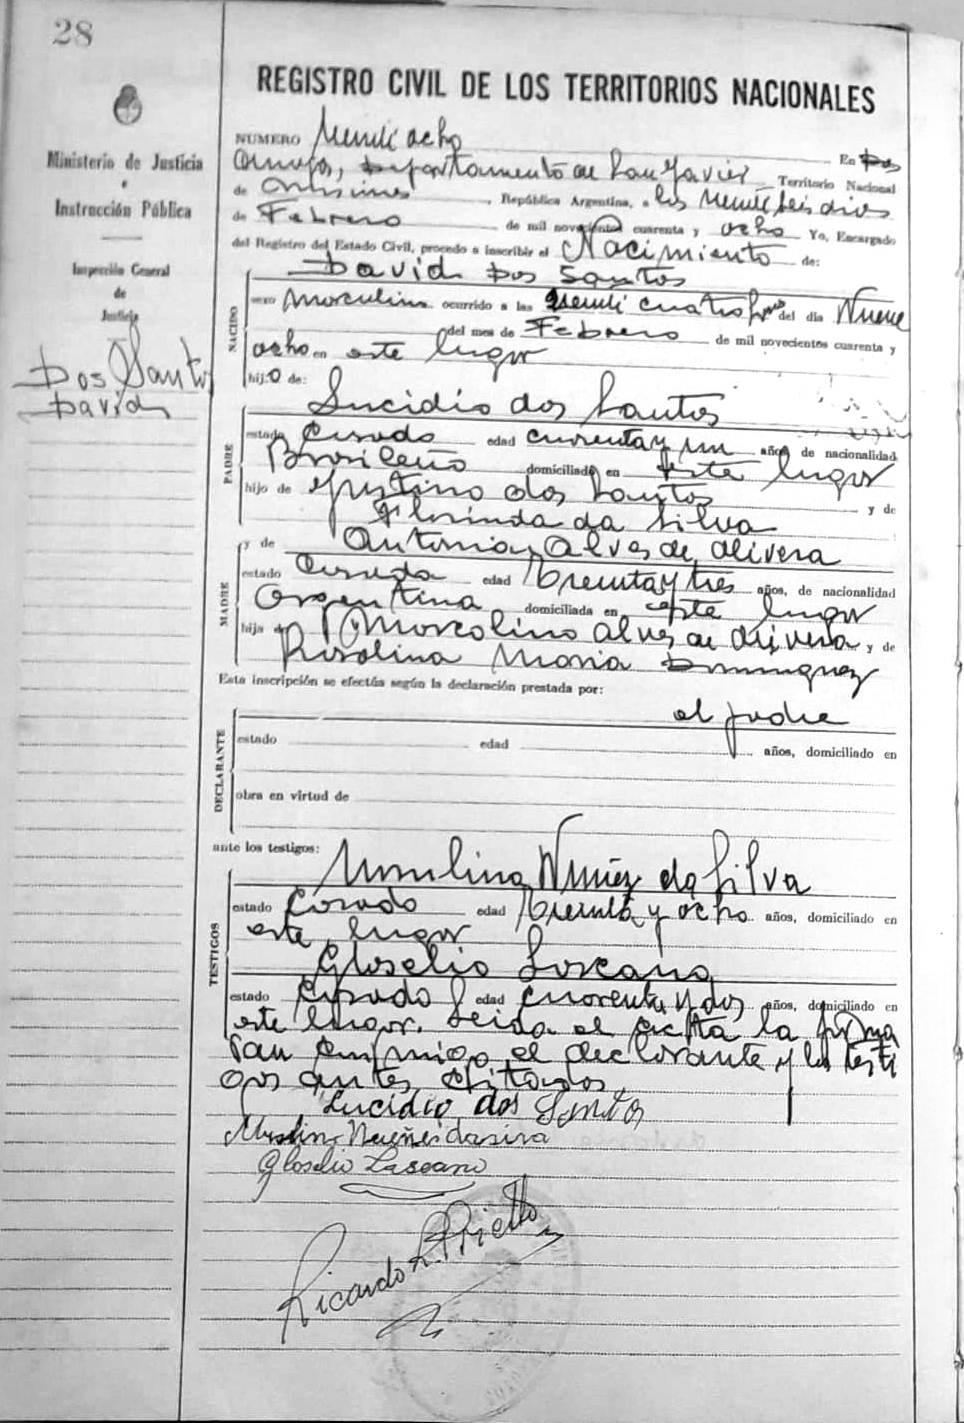 28
Ministerio de Justicia
e
Instrucción Pública
Inspección General
de
Justicia
Dos Santos
David
REGISTRO CIVIL DE LOS TERRITORIOS NACIONALES
NUMERO Veinti ocho En Dos
Arroyos, Departamento de San Javier Territorio Nacional
de Misiones, República Argentina, a los Veinti seis dias
de Febrero de mil novecientos cuarenta y ocho Yo, Encargado
del Registro del Estado Civil, procedo a inscribir el Nacimiento de:
David Dos Santos
NACIDO
sexo Masculino ocurrido a las Veinti cuatro hras del dia Nueve
del mes de Febrero de mil novecientos cuarenta y
ocho en este lugar
hijo de:
PADRE
Lucidio dos Santos
estado Casado edad cuarenta y un años de nacionalidad
Brasileño domiciliado en este lugar
hijo de Justino dos Santos y de
Florinda da Silva
MADRE
y de Antonia Alves de Olivera
estado Casada edad Treinta y tres años, de nacionalidad
Argentina domiciliada en este lugar
hija de Marcolino Alves de Olivera y de
Rosalina Maria Dominguez
Esta inscripción se efectúa según la declaración prestada por:
DECLARANTE
el padre
estado edad años, domiciliado en
obra en virtud de
ante los testigos:
TESTIGOS
Nuñez da Silva
estado Casado edad Treinta y ocho años, domiciliado en
este lugar
Gloselio Lascano
estado Casado edad cuarenta y dos años, domiciliado en
este lugar. Leida el acta la firma
ran conmigo el declarante y los testi
gos antes citados
Lucidio dos Santos
Gloselio Lascano
Ricardo R. Prietto